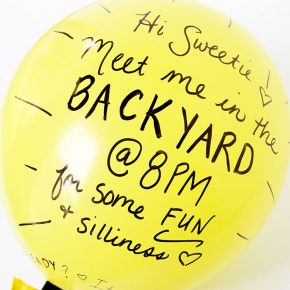 Hi Sweetie! ♡
Meet me in the
BACKYARD
@ 8PM
for some FUN
+ silliness ♡